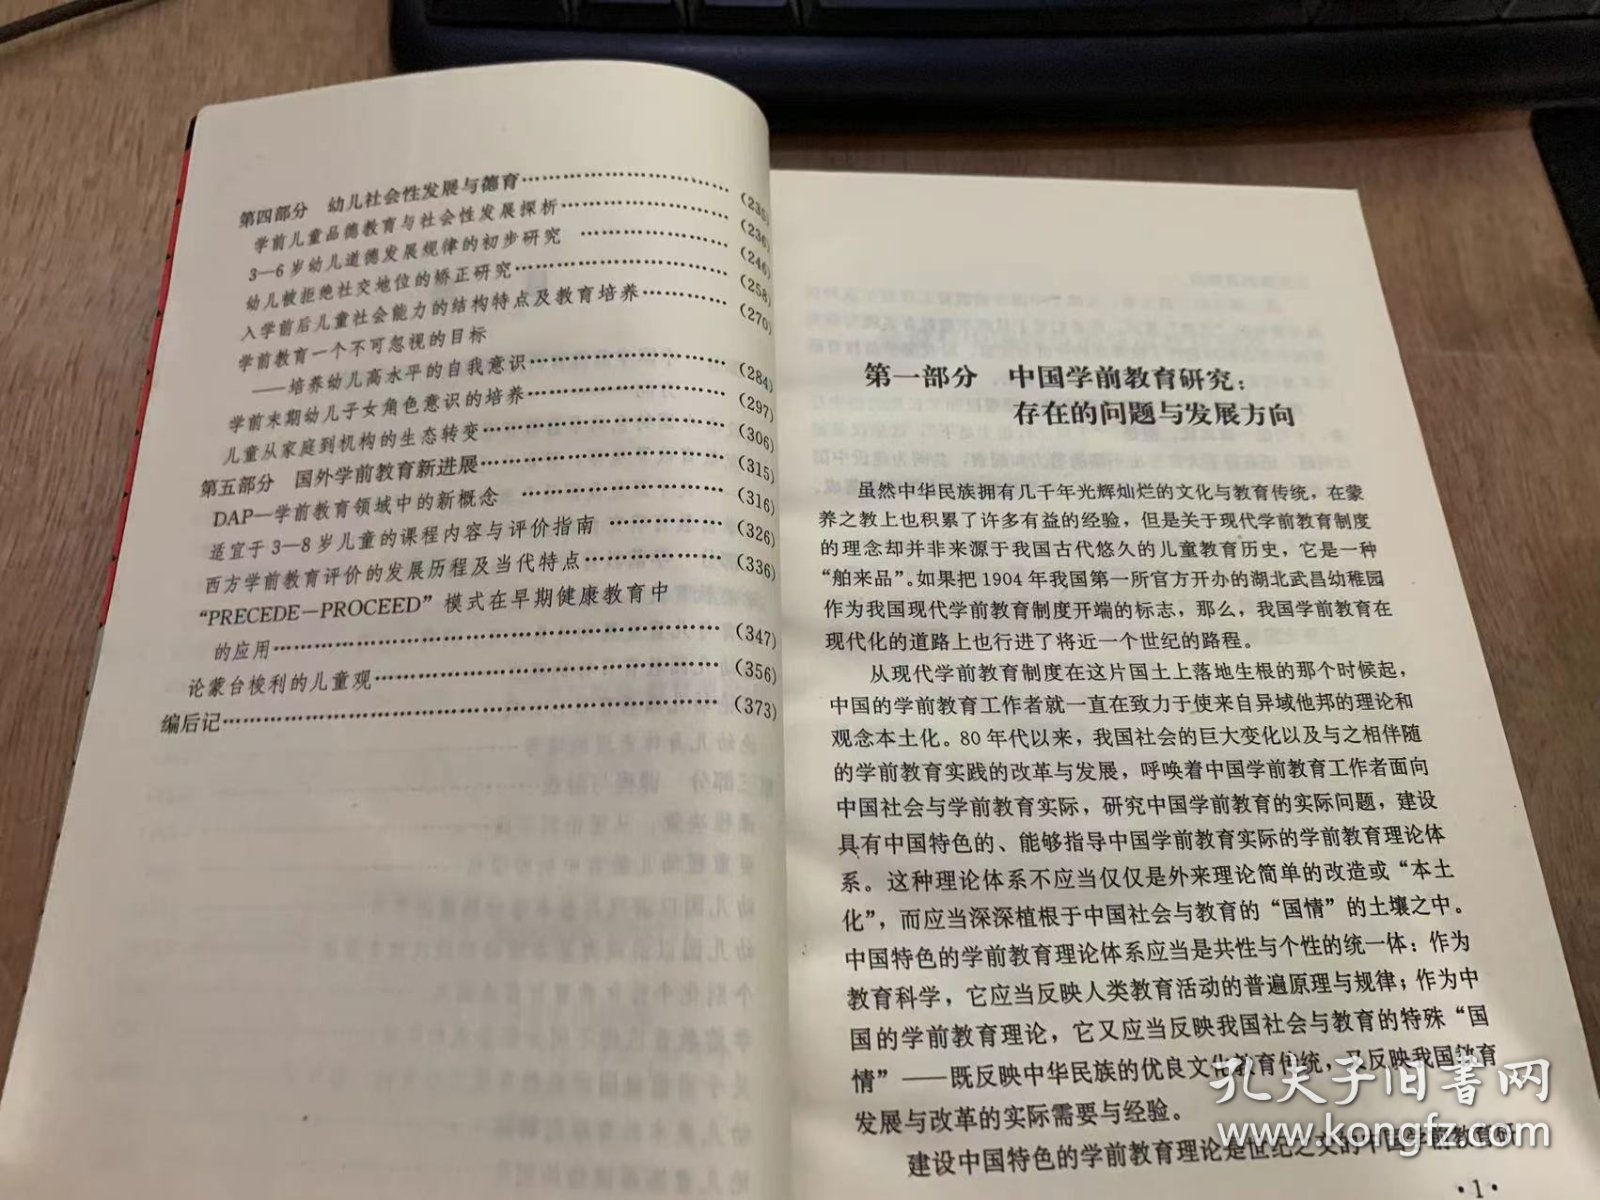 第四部分 幼儿社会性发展与德育……………………………(235)
学前儿童品德教育与社会性发展探析………………………(236)
3—6岁幼儿道德发展规律的初步研究 ……………………(246)
幼儿被拒绝社交地位的矫正研究……………………………(258)
入学前后儿童社会能力的结构特点及教育培养……………(270)
学前教育一个不可忽视的目标
——培养幼儿高水平的自我意识……………………………(284)
学前末期幼儿子女角色意识的培养…………………………(297)
儿童从家庭到机构的生态转变………………………………(306)
第五部分 国外学前教育新进展………………………………(315)
DAP—学前教育领域中的新概念 …………………………(316)
适宜于3—8岁儿童的课程内容与评价指南 ………………(326)
西方学前教育评价的发展历程及当代特点…………………(336)
“PRECEDE—PROCEED”模式在早期健康教育中
的应用…………………………………………………………(347)
论蒙台梭利的儿童观…………………………………………(356)
编后记…………………………………………………………(373)
第一部分 中国学前教育研究：
存在的问题与发展方向
虽然中华民族拥有几千年光辉灿烂的文化与教育传统，在蒙
养之教上也积累了许多有益的经验，但是关于现代学前教育制度
的理念却并非来源于我国古代悠久的儿童教育历史，它是一种
“舶来品”。如果把1904年我国第一所官方开办的湖北武昌幼稚园
作为我国现代学前教育制度开端的标志，那么，我国学前教育在
现代化的道路上也行进了将近一个世纪的路程。
从现代学前教育制度在这片国土上落地生根的那个时候起，
中国的学前教育工作者就一直在致力于使来自异域他邦的理论和
观念本土化。80年代以来，我国社会的巨大变化以及与之相伴随
的学前教育实践的改革与发展，呼唤着中国学前教育工作者面向
中国社会与学前教育实际，研究中国学前教育的实际问题，建设
具有中国特色的、能够指导中国学前教育实际的学前教育理论体
系。这种理论体系不应当仅仅是外来理论简单的改造或“本土
化”，而应当深深植根于中国社会与教育的“国情”的土壤之中。
中国特色的学前教育理论体系应当是共性与个性的统一体：作为
教育科学，它应当反映人类教育活动的普遍原理与规律；作为中
国的学前教育理论，它又应当反映我国社会与教育的特殊“国
情”——既反映中华民族的优良文化教育传统，又反映我国教育
发展与改革的实际需要与经验。
建设中国特色的学前教育理论是世纪之交的中国学前教育研
·1·
孔夫子旧书网
www.kongfz.com